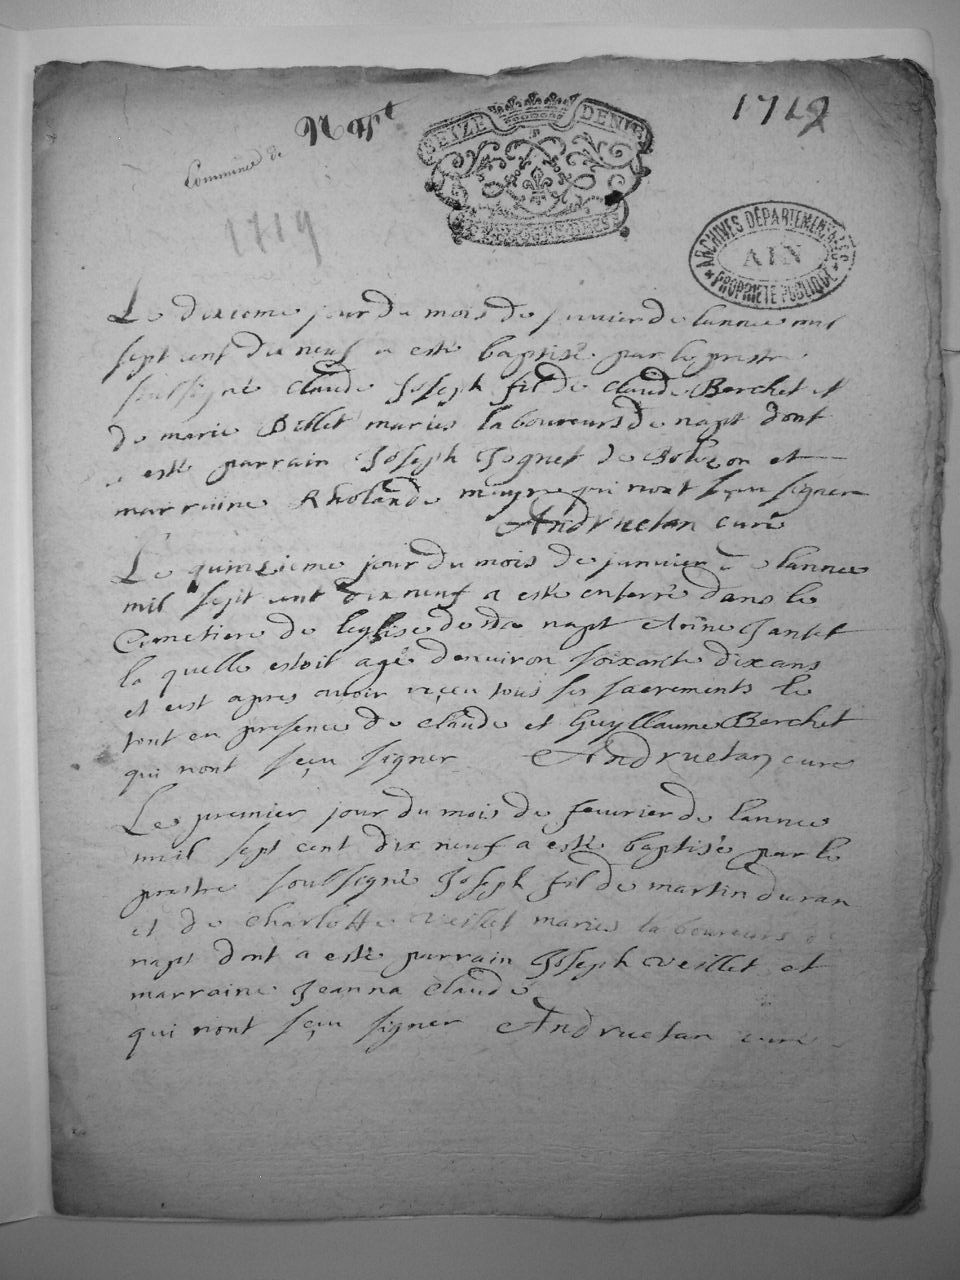 Commune de Napt
SEIZE DENIE
1719
1719
ARCHIVES DÉPARTEMENTALES
AIN
PROPRIETE PUBLIQUE
Le dixieme jour du mois de janvier de lannee mil
sept cent dix neuf a esté baptisé par le prestre
soubsigné claude Joseph fil de claude Berchet et
de marie Billet mariés laboureurs de napt dont
a esté parrain Joseph Jognet de et
marraine Rholande qui nont sçeu signer
Andruetan curé
Le quinzieme jour du mois de janvier de lannee
mil sept cent dix neuf a esté enterré dans le
Cemetiere de leglise de napt Jantet
la quelle estoit agé denviron soixante dix ans
et est apres avoir reçeu tous ses sacrements le
tout en presence de claude et Guyllaume Berchet
qui nont sçeu signer Andruetan curé
Le premier jour du mois de feuvrier de lannee
mil sept cent dix neuf a esté baptisé par le
prestre soubsigné Joseph fil de martin duran
et de Charlotte veillet mariés laboureurs de
napt dont a esté parrain Joseph veillet et
marraine Jeanna claude
qui nont sçeu signer Andruetan curé